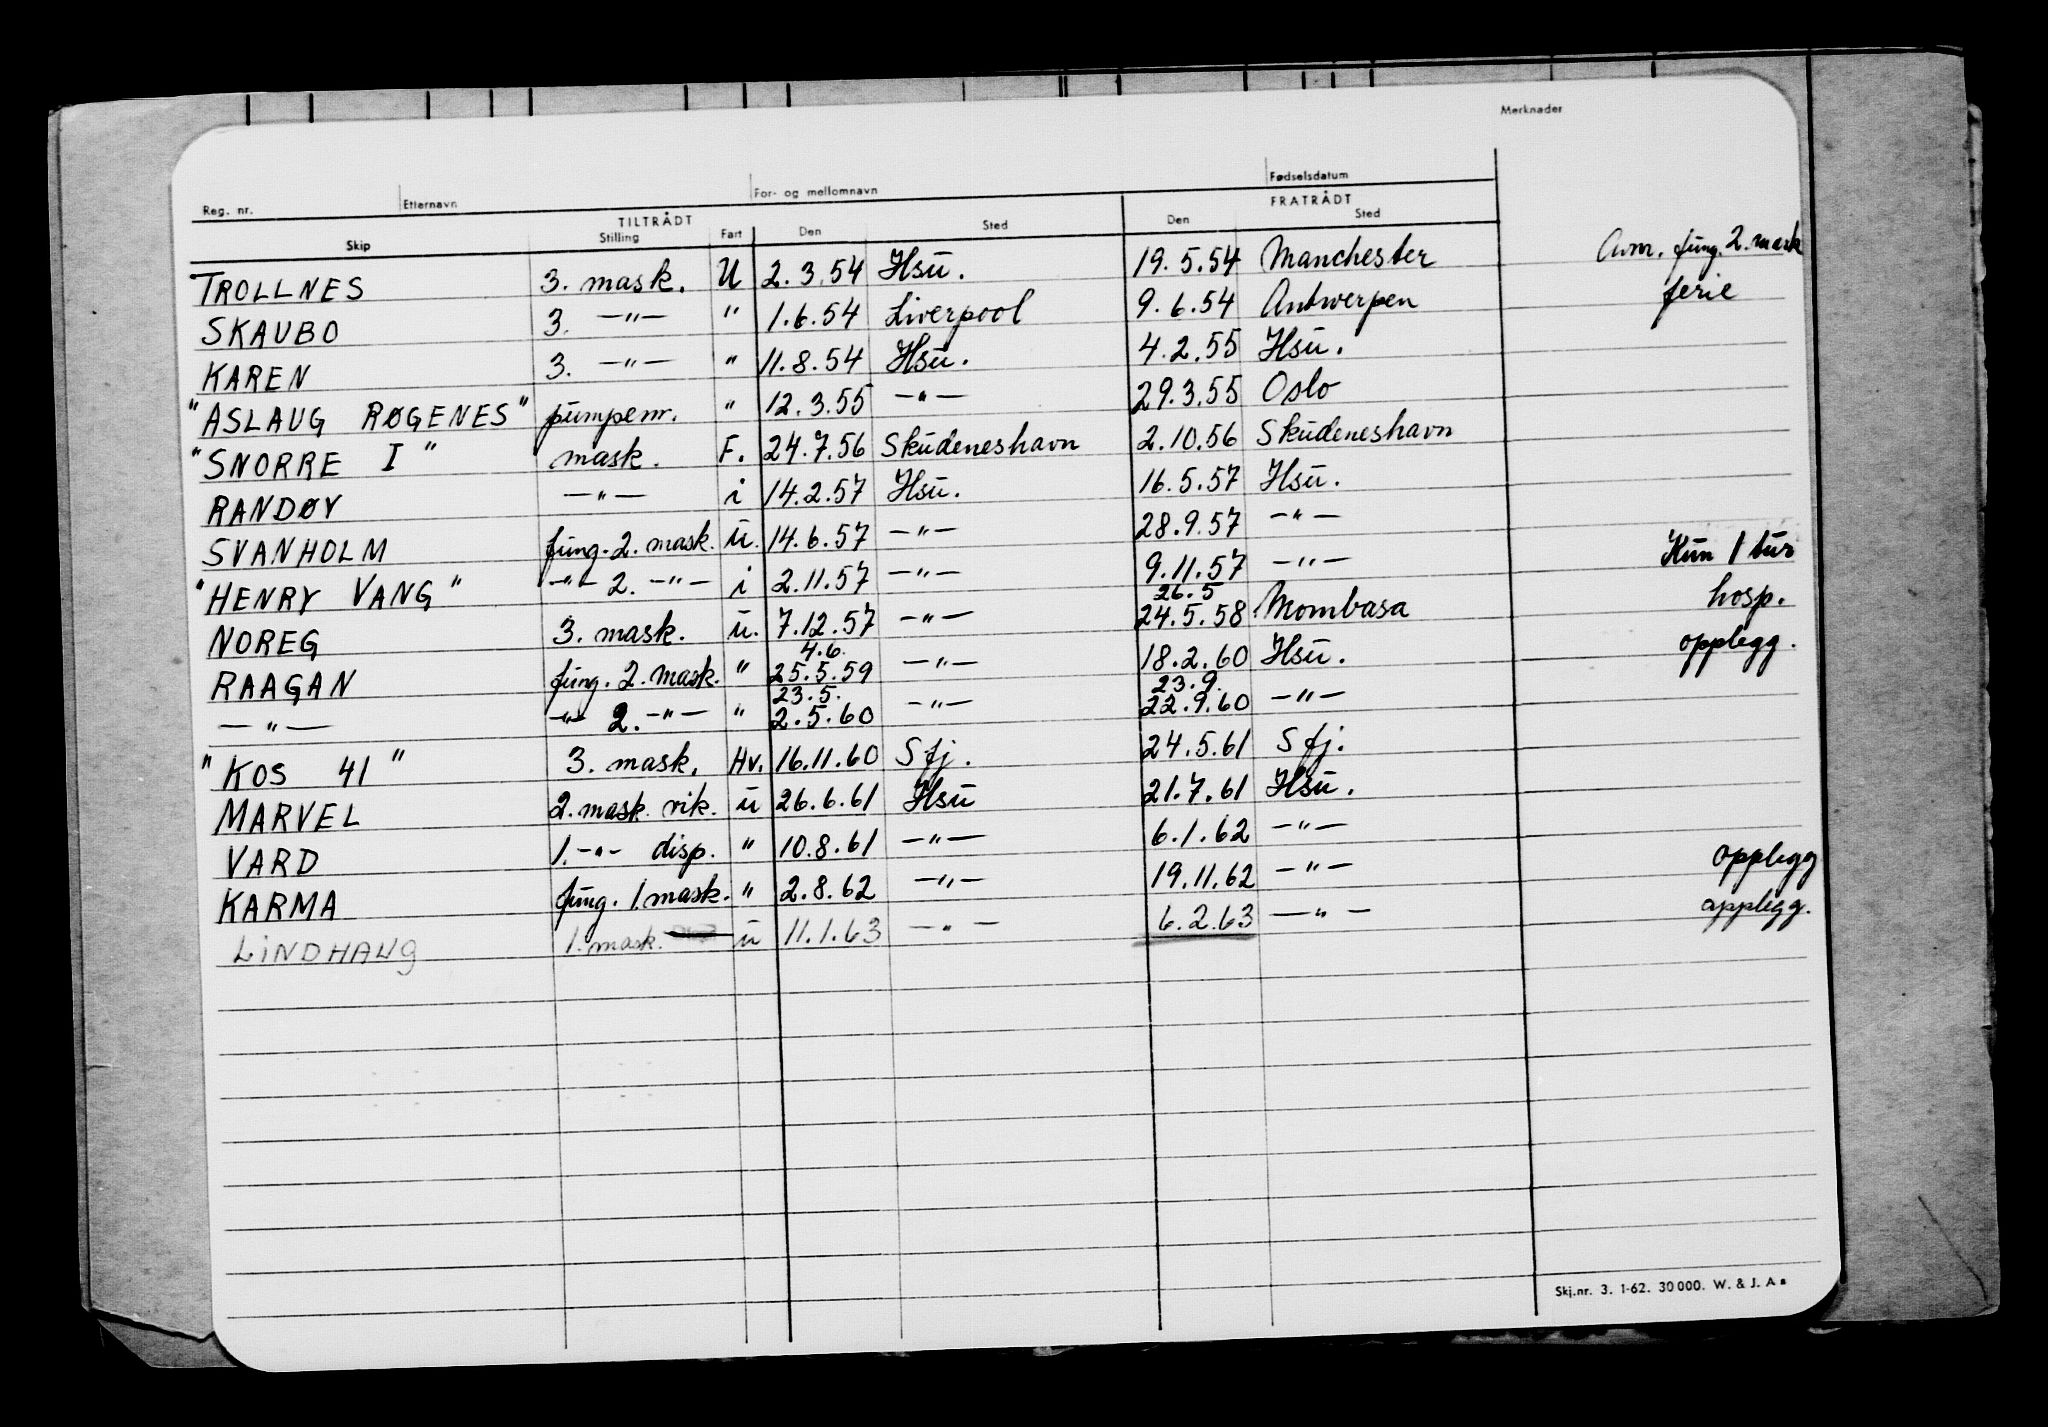 Merknader
Reg. nr. Etternavn For- og mellomnavn Fødselsdatum
TILTRÅDT FRATRÅDT
Skip Stilling Fart Den Sted Den Sted
TROLLNES 3. mask. U 2.3.54 Hsu. 19.5.54 Manchester Avm. fung. 2. mask
SKAUBO 3. —"— " 1.6.54 Liverpool 9.6.54 Antwerpen ferie
KAREN 3. —"— " 11.8.54 Hsu. 4.2.55 Hsu.
"ASLAUG RØGENES" pumpem. " 12.3.55 —"— 29.3.55 Oslo
"SNORRE I" mask. F. 24.7.56 Skudeneshavn 2.10.56 Skudeneshavn
RANDØY —"— i 14.2.57 Hsu. 16.5.57 Hsu.
SVANHOLM fung. 2. mask. u. 14.6.57 —"— 28.9.57 —"—
"HENRY VANG" —"— 2. —"— i 2.11.57 —"— 9.11.57 —"— Kun 1 tur
26.5
NOREG 3. mask. u. 7.12.57 —"— 24.5.58 Mombasa hosp.
4.6.
RAAGAN fung. 2. mask. " 25.5.59 —"— 18.2.60 Hsu. opplegg.
23.5. 23.9.
—"— —"— 2. —"— " 2.5.60 —"— 22.9.60 —"—
"KOS 41" 3. mask. Hv. 16.11.60 Sfj. 24.5.61 Sfj.
MARVEL 2. mask. vik. u 26.6.61 Hsu 21.7.61 Hsu.
VARD 1. —"— disp. " 10.8.61 —"— 6.1.62 —"—
KARMA fung. 1. mask. " 2.8.62 —"— 19.11.62 —"— opplegg
LINDHAUG 1. mask. u 11.1.63 —"— 6.2.63 —"— opplegg.
Skj.nr. 3. 1-62. 30 000. W. & J. A s